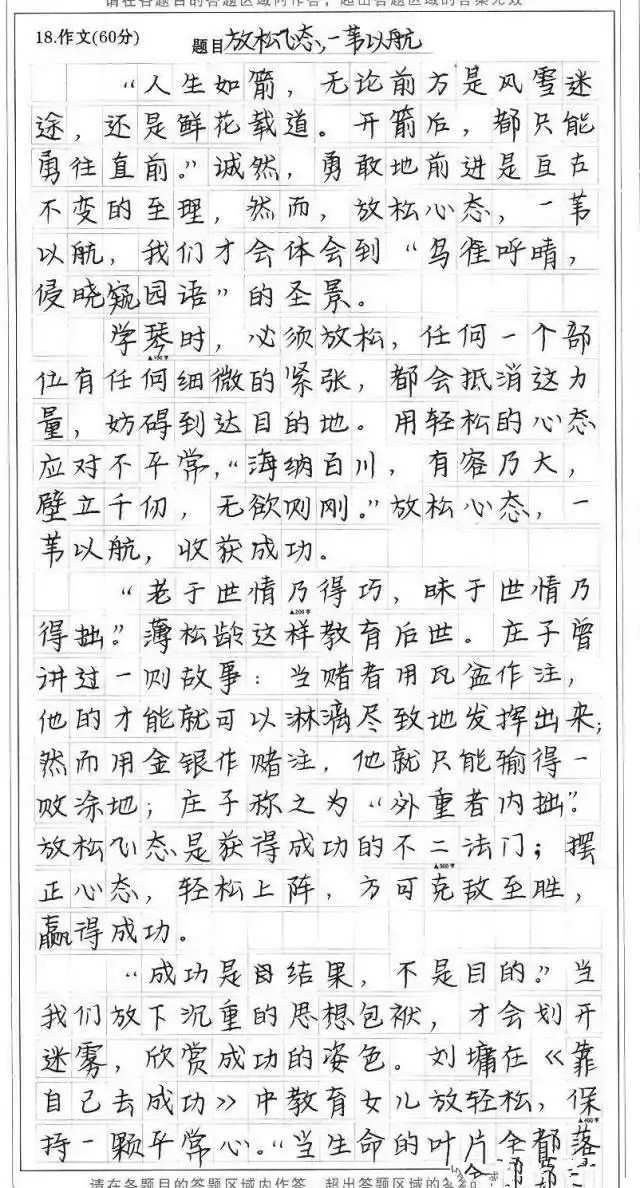 请在各题目的答题区域内作答，超出答题区域的答案无效
18.作文(60分) 题目 放松心态,一苇以航
“人生如箭，无论前方是风雪迷
途，还是鲜花载道。开箭后，都只能
勇往直前。”诚然，勇敢地前进是亘古
不变的至理，然而，放松心态，一苇
以航，我们才会体会到“鸟雀呼晴，
侵晓窥园语”的圣景。
学琴时，必须放松，任何一个部
▲100字
位有任何细微的紧张，都会抵消这力
量，妨碍到达目的地。用轻松的心态
应对不平常，“海纳百川，有容乃大，
壁立千仞，无欲则刚。”放松心态，一
苇以航，收获成功。
“老于世情乃得巧，昧于世情乃
▲200字
得拙。”薄松龄这样教育后世。庄子曾
讲过一则故事：当赌者用瓦盆作注，
他的才能就可以淋漓尽致地发挥出来；
然而用金银作赌注，他就只能输得一
败涂地；庄子称之为“外重者内拙”。
放松心态是获得成功的不二法门；摆
▲300字
正心态，轻松上阵，方可克敌至胜，
赢得成功。
“成功是结果，不是目的。”当
我们放下沉重的思想包袱，才会划开
迷雾，欣赏成功的姿色。刘墉在《靠
自己去成功》中教育女儿放轻松，保
▲400字
持一颗平常心。“当生命的叶片全都落
请在各题目的答题区域内作答，超出答题区域的答